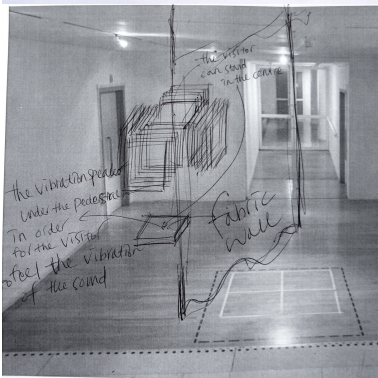 the visitor
can stand
in the centre
the vibration speaker
under the pedestal
in order
for the visitor
to feel the vibration
of the sound
fabric
wall